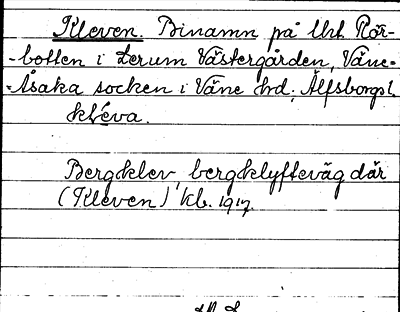 Kleven. Binamn på lht. Rör-
-botten i Lerum Västergården, Väne-
-Åsaka socken i Väne hd. Älfsborgs l.
kléva.
Bergklev, bergklyfteväg där
(Kleven) kb. 1917.